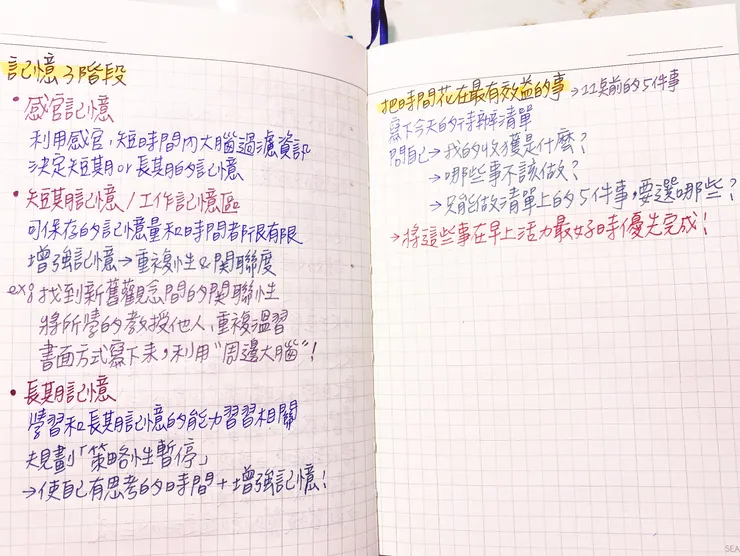 記憶3階段
• 感官記憶
利用感官,短時間內大腦過濾資訊
決定短期or長期的記憶
• 短期記憶/工作記憶區
可保存的記憶量和時間都很有限
增強記憶→重複性&関聯度
ex: 找到新舊觀念間的関聯性
將所學的教授他人,重複溫習
書面方式寫下來,利用"周邊大腦"!
• 長期記憶
學習和長期記憶的能力習習相關
規劃「策略性暫停」
→使自己有思考的時間+增強記憶!
把時間花在最有效益的事→11點前的5件事
寫下今天的待辦清單
問自己→我的收獲是什麼?
→哪些事不該做?
→只能做清單上的5件事,要選哪些?
→將這些事在早上活力最好時優先完成!
SEA